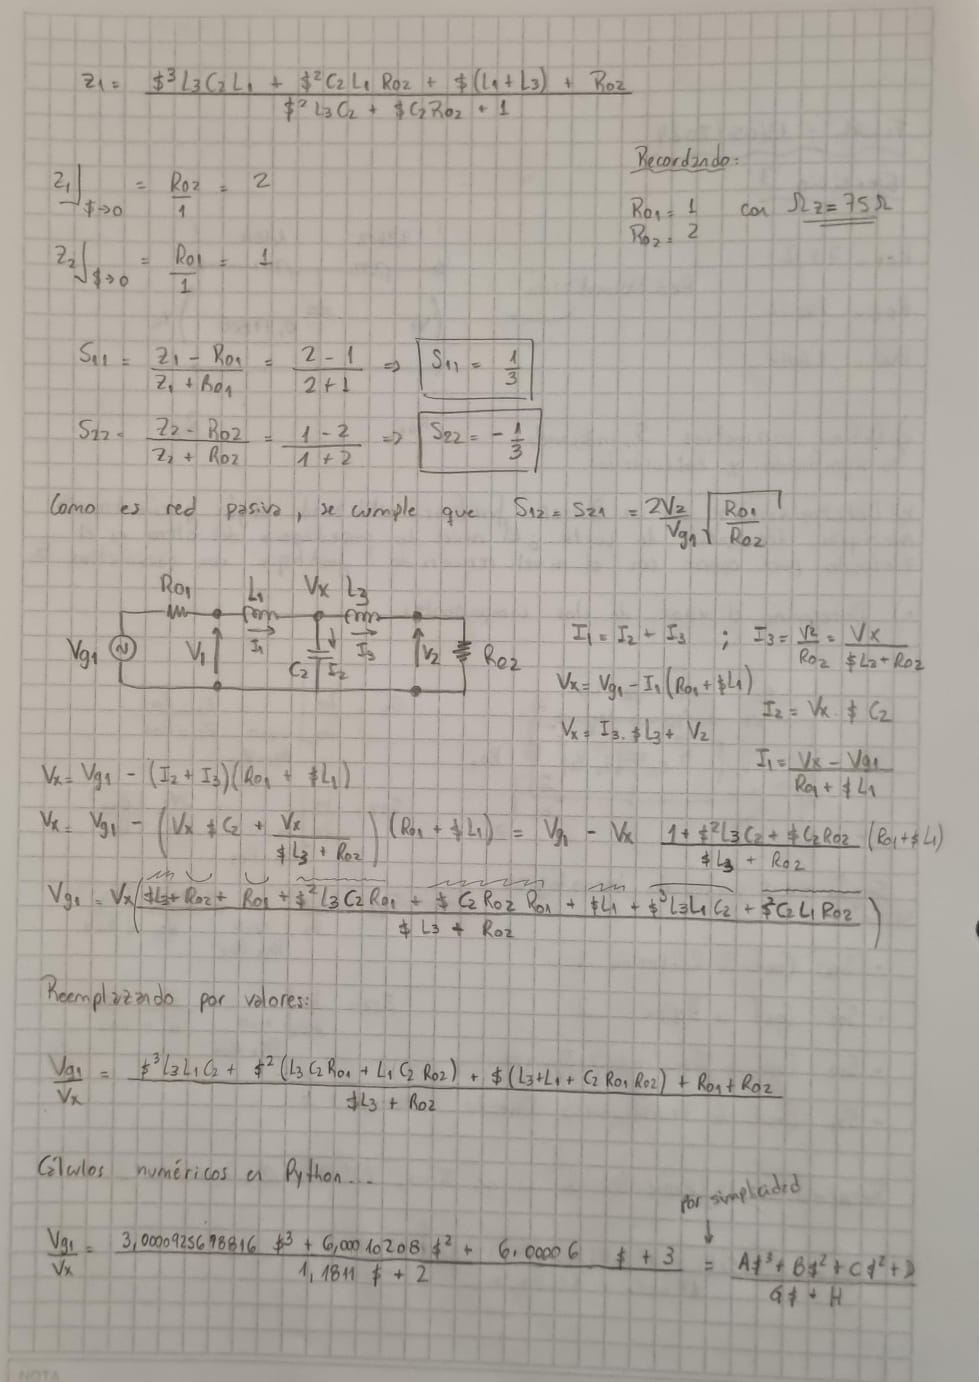 Z1 = ($³L3C2L1 + $²C2L1R02 + $(L1+L3) + R02) / ($²L3C2 + $C2R02 + 1)
Recordando:
Z1⌋$→0 = R02/1 = 2
R01 = 1 con Ωz = 75Ω
R02 = 2
Z2⌋$→0 = R01/1 = 1
S11 = (Z1 - R01)/(Z1 + R01) = (2 - 1)/(2 + 1) => S11 = 1/3
S22 = (Z2 - R02)/(Z2 + R02) = (1 - 2)/(1 + 2) => S22 = -1/3
Como es red pasiva, se cumple que S12 = S21 = 2V2/Vg1 √(R01/R02)
R01 L1 Vx L3
Vg1 V1 I1 C2 I2 I3 V2 R02
I1 = I2 + I3 ; I3 = V2/R02 = Vx/($L2 + R02)
Vx = Vg1 - I1(R01 + $L1)
I2 = Vx $ C2
Vx = I3.$L3 + V2
I1 = (Vx - Vg1)/(R01 + $L1)
Vx = Vg1 - (I2 + I3)(R01 + $L1)
Vx = Vg1 - (Vx $C2 + Vx/($L3 + R02))(R01 + $L1) = Vg1 - Vx (1 + $²L3C2 + $C2R02)/($L3 + R02) (R01 + $L1)
Vg1 = Vx(($L3 + R02 + R01 + $²L3C2R01 + $C2R02R01 + $L1 + $³L3L1C2 + $²C2L1R02)/($L3 + R02))
Reemplazando por valores:
Vg1/Vx = ($³L3L1C2 + $²(L3C2R01 + L1C2R02) + $(L3+L1 + C2R01R02) + R01 + R02)/($L3 + R02)
Cálculos numéricos en Python...
por simplicidad
Vg1/Vx = (3,0000925698816 $³ + 6,00010208 $² + 6,00006 $ + 3)/(1,1811 $ + 2) = (A$³ + B$² + C$² + D)/(G$ + H)
NOTA